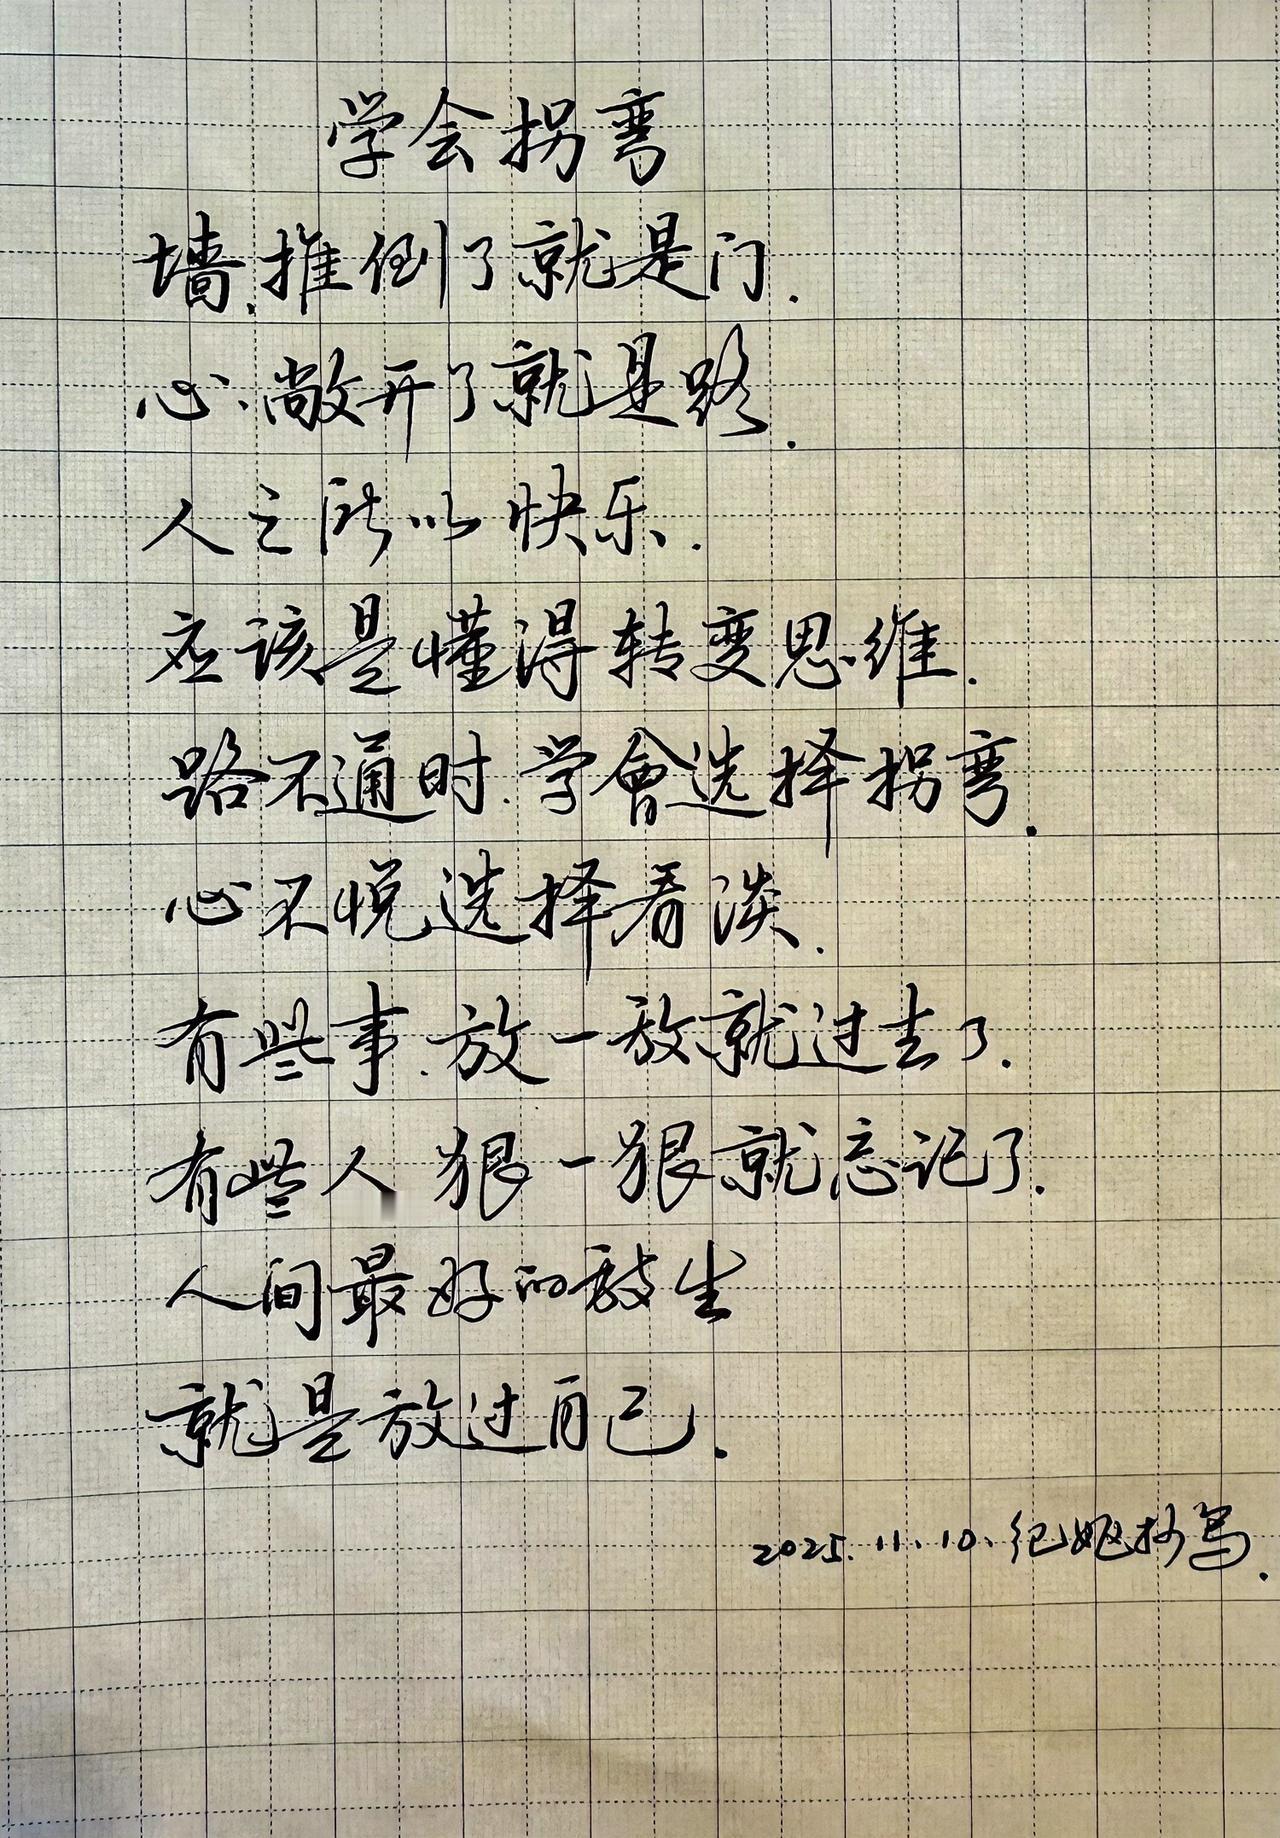 学会拐弯
墙.推倒了就是门.
心.敞开了就是路.
人之所以快乐.
应该是懂得转变思维.
路不通时.学會选择拐弯.
心不悦选择看淡.
有些事.放一放就过去了.
有些人 狠一狠就忘记了.
人间最好的放生
就是放过自己.
2025.11.10.纪姬抄写.